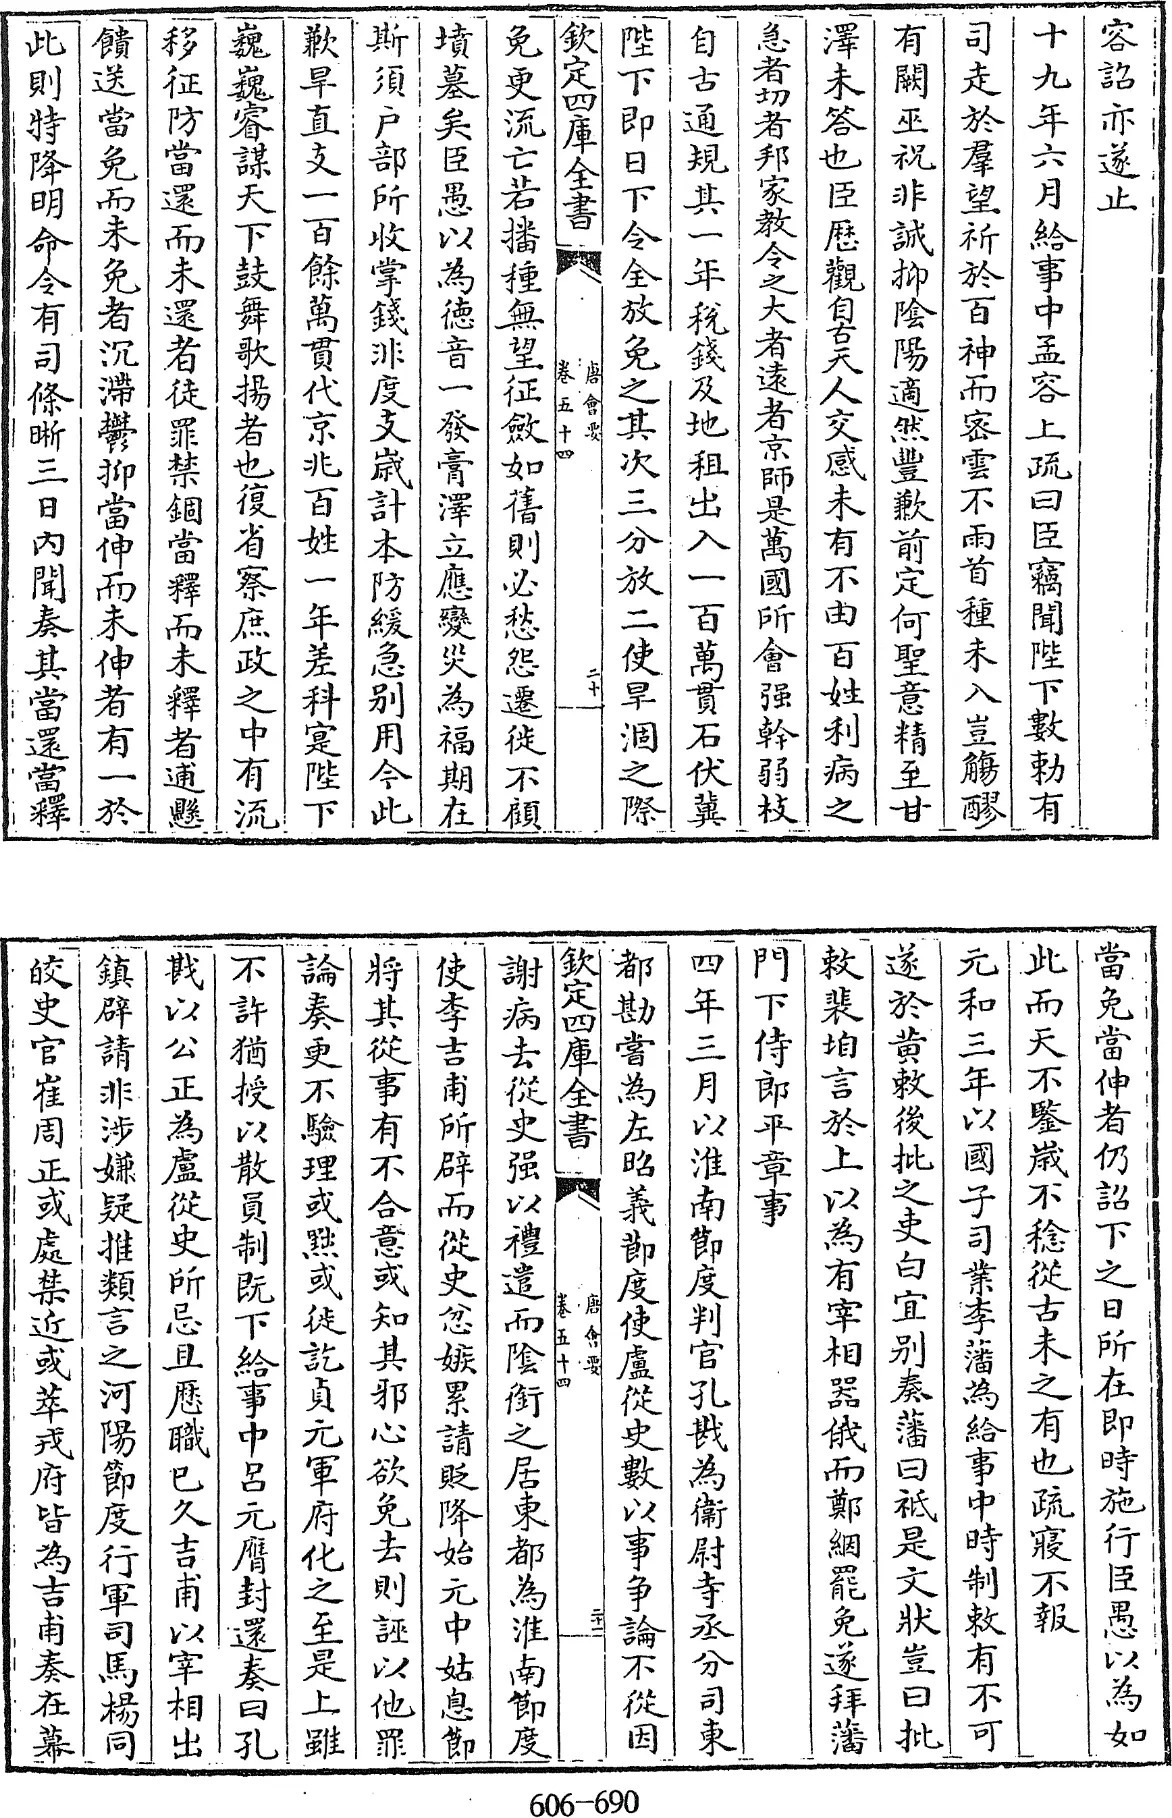 容詔亦遂止
十九年六月給事中孟容上疏曰臣竊聞陛下數勅有
司走於羣望祈於百神而密雲不雨首種未入豈觴醪
有闕巫祝非誠抑陰陽適然豐歉前定何聖意精至甘
澤未答也臣歴觀自古天人交感未有不由百姓利病之
急者切者邦家教令之大者遠者京師是萬國所會强幹弱枝
自古通規其一年税錢及地租出入一百萬貫石伏冀
陛下即日下令全放免之其次三分放二使旱涸之際
欽定四庫全書
唐會要
卷五十四
二十
免更流亡若播種無望征斂如舊則必愁怨遷徙不顧
墳墓矣臣愚以為徳音一發膏澤立應變災為福期在
斯須户部所收掌錢非度支嵗計本防緩急别用今此
歉旱直支一百餘萬貫代京兆百姓一年差科寔陛下
巍巍睿謀天下鼓舞歌揚者也復省察庶政之中有流
移征防當還而未還者徒罪禁錮當釋而未釋者逋懸
饋送當免而未免者沉滯鬱抑當伸而未伸者有一於
此則特降明命令有司條晰三日内聞奏其當還當釋
當免當伸者仍詔下之日所在即時施行臣愚以為如
此而天不鑒嵗不稔從古未之有也疏寢不報
元和三年以國子司業李藩為給事中時制敕有不可
遂於黄敕後批之吏白宜别奏藩曰祗是文狀豈曰批
敕裴垍言於上以為有宰相器俄而鄭絪罷免遂拜藩
門下侍郎平章事
四年三月以淮南節度判官孔戡為衛尉寺丞分司東
都勘嘗為左昭義節度使盧從史數以事争論不從因
欽定四庫全書
唐會要
卷五十四
二十一
謝病去從史强以禮遣而隂銜之居東都為淮南節度
使李吉甫所辟而從史忿嫉累請貶降始元中姑息節
將其從事有不合意或知其邪心欲免去則誣以他罪
論奏更不驗理或黜或徙訖貞元軍府化之至是上雖
不許猶授以散員制既下給事中吕元膺封還奏曰孔
戡以公正為盧從史所忌且歴職已久吉甫以宰相出
鎮辟請非涉嫌疑推類言之河陽節度行軍司馬楊同
皎史官崔周正或處禁近或萃戎府皆為吉甫奏在幕
606-690